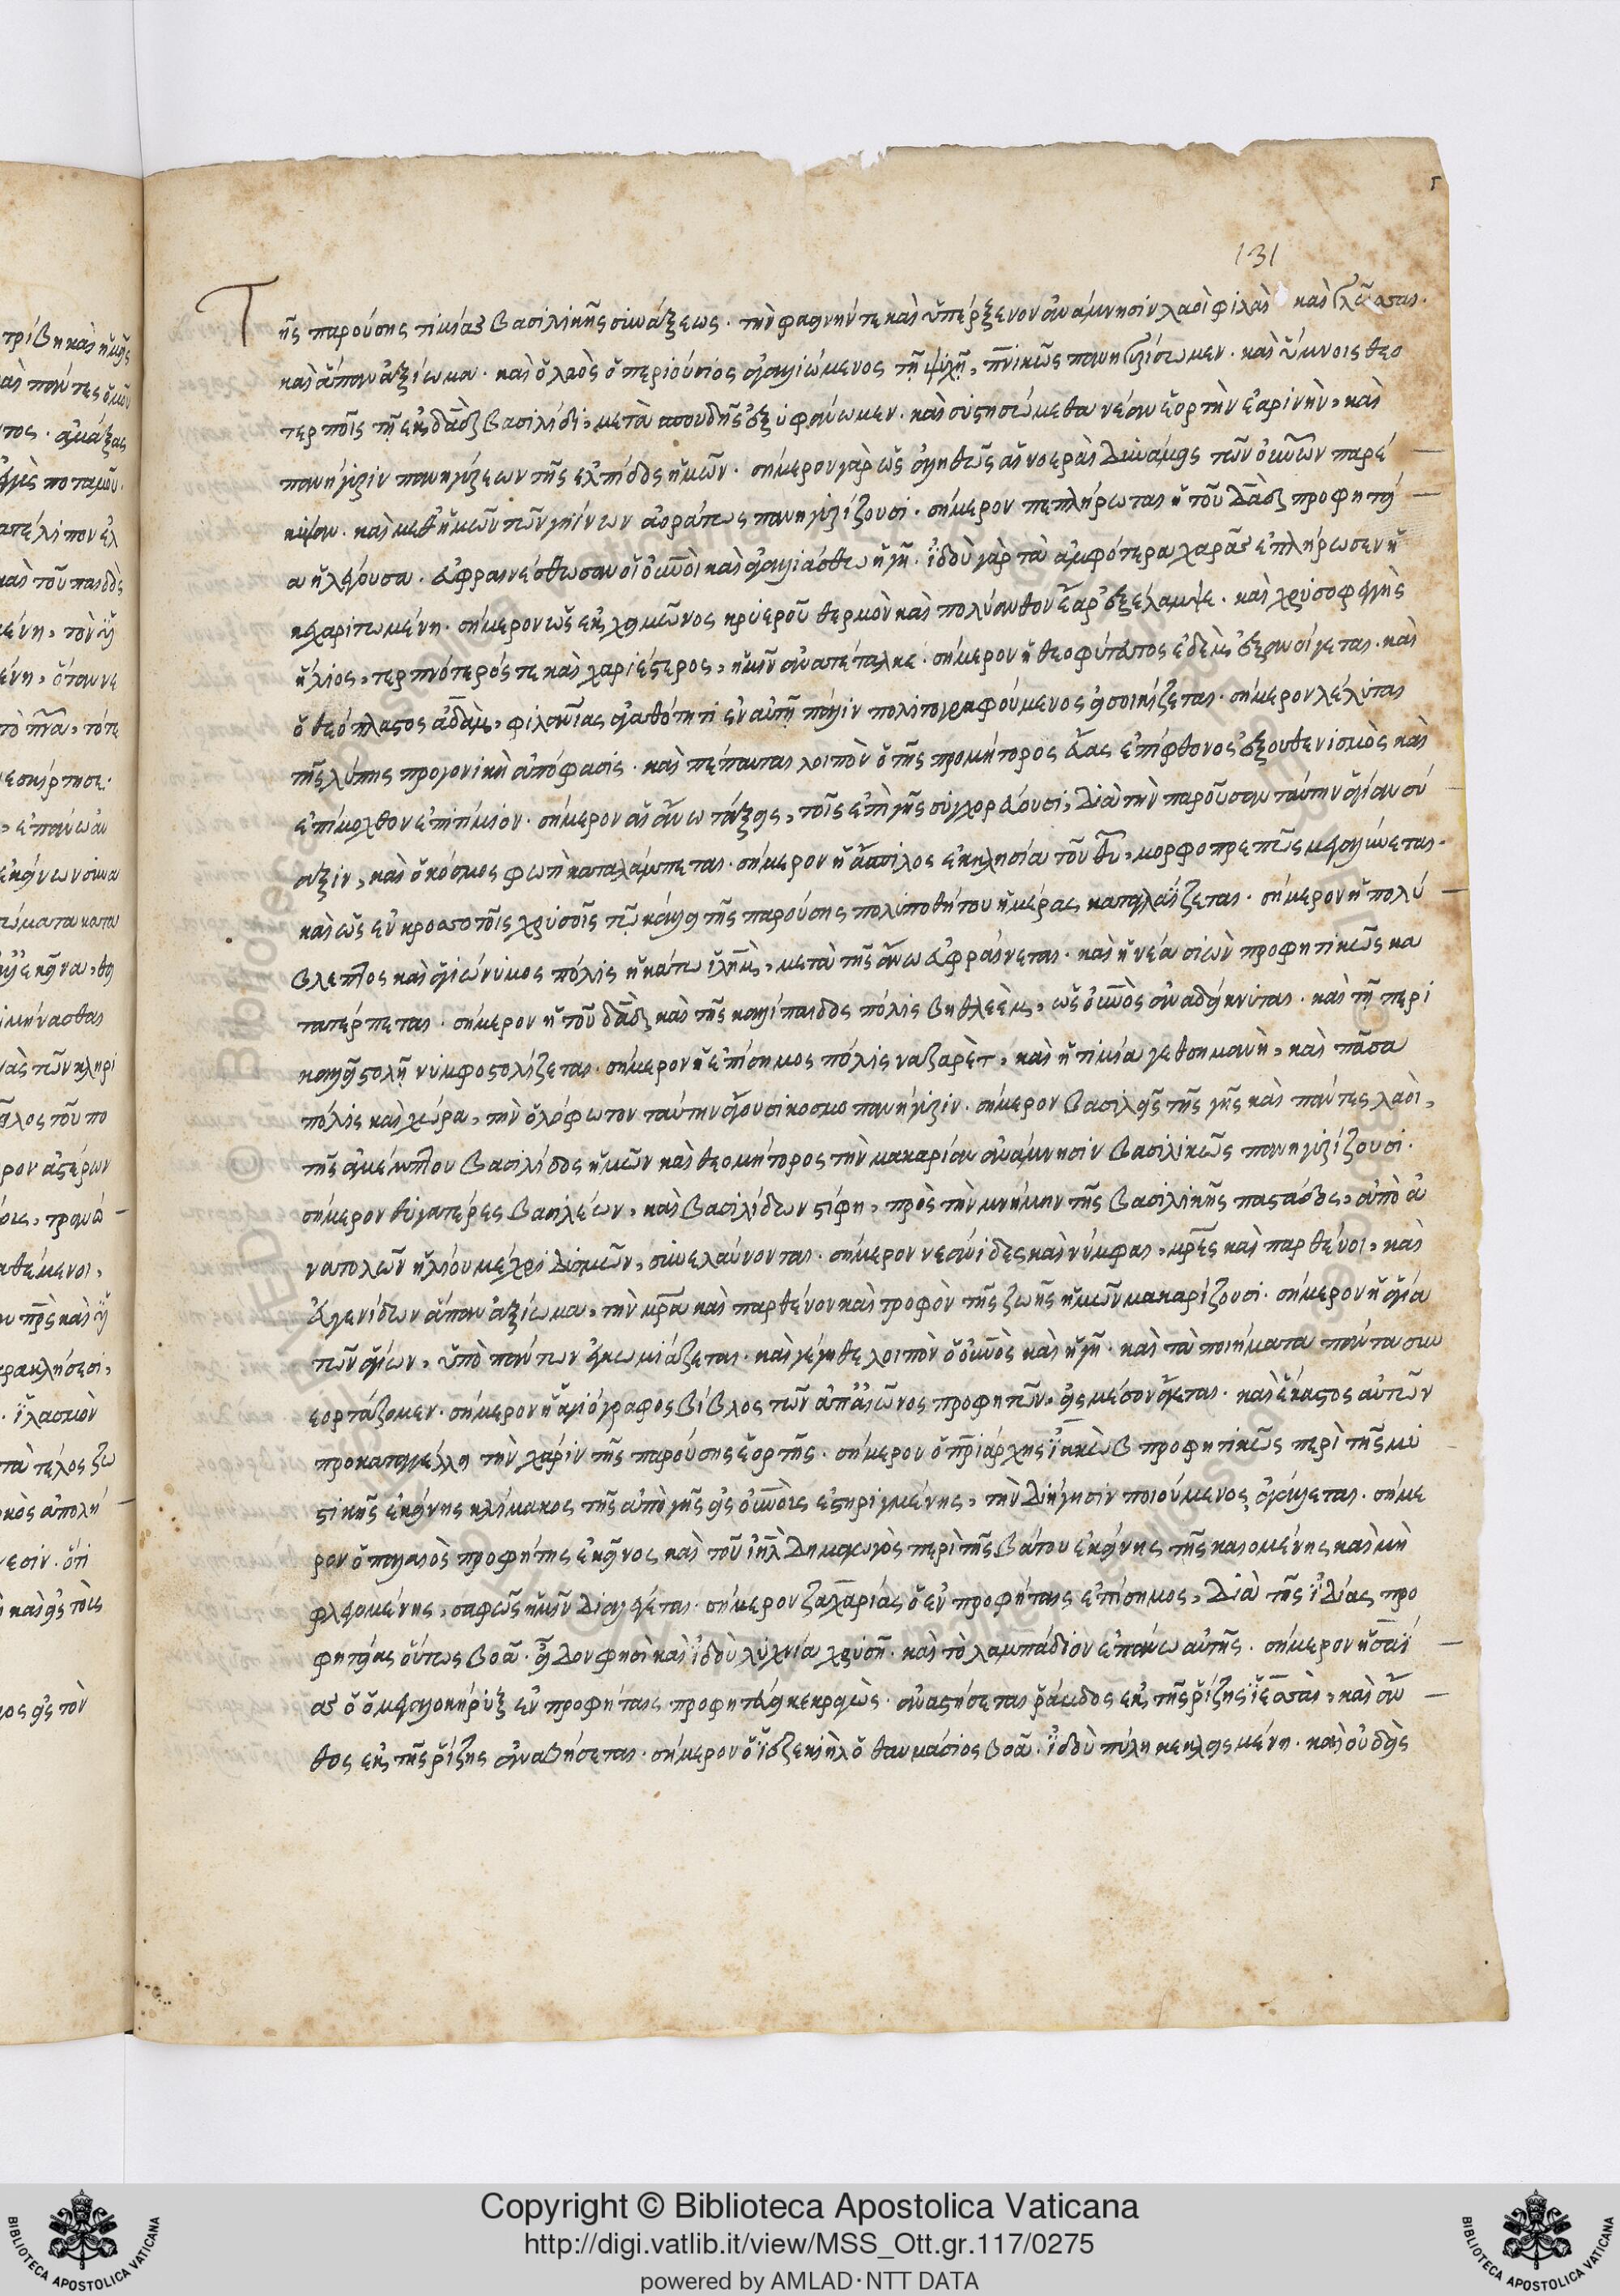 131
Τῆς παρούσης τιμίας βασιλικῆς συνάξεως. τὴν φαεινήν τε καὶ ὑπέρξενον ἀνάμνησιν λαοὶ φυλαὶ καὶ γλῶσσαι.
καὶ ἅπαν ἀξίωμα. καὶ ὁ λαὸς ὁ περιούσιος ἀγαλλιώμενος τῇ ψυχῇ, πνικῶς πανηγυρίσωμεν. καὶ ὕμνοις θεο
τερποῖς τῇ ἐκ δαδ βασιλίδι, μετὰ σπουδῆς ἐξυφάνωμεν. καὶ συστησώμεθα νέαν ἑορτὴν ἐαρινὴν, καὶ
πανήγυριν πανηγύρεων τῆς ἐλπίδος ἡμῶν. σήμερον γὰρ ὡς ἀληθῶς αἱ νοεραὶ δυνάμεις τῶν οὐνῶν παρέ
κυψαν. καὶ μεθ ἡμῶν τῶν γηΐνων ἀοράτως πανηγυρίζουσι. σήμερον πεπλήρωται ἡ τοῦ δαδ προφητεί
α ἡ λέγουσα. εὐφραινέσθωσαν οἱ οὐνοὶ καὶ ἀγαλλιάσθω ἡ γῆ. ἰδοὺ γὰρ τὰ ἀμφότερα χαρᾶς ἐπλήρωσεν ἡ
κεχαριτωμένη. σήμερον ὡς ἐκ χειμῶνος κρυεροῦ θερμὸν καὶ πολύανθον ἔαρ ἐξέλαμψε. καὶ χρυσοφεγγὴς
ἥλιος, τερπνότερός τε καὶ χαριέστερος, ἡμῖν ἀνατέταλκε. σήμερον ἡ θεοφύτευτος ἐδὲμ ἐξανοίγεται. καὶ
ὁ θεόπλαστος ἀδὰμ, φιλανίας ἀγαθότητι ἐν αὐτῇ πάλιν πολιτογραφούμενος εἰσοικίζεται. σήμερον λέλυται
τῆς λύπης προγονικὴ ἀπόφασις. καὶ πέπαυται λοιπὸν ὁ τῆς προμήτορος εὔας ἐπίφθονος ἐξουθενισμὸς καὶ
ἐπίμοχθον ἐπιτίμιον. σήμερον αἱ ἄνω τάξεις, τοῖς ἐπὶ γῆς συγχορεύουσι, διὰ τὴν παροῦσαν ταύτην ἁγίαν σύ
ναξιν, καὶ ὁ κόσμος φωτὶ καταλάμπεται. σήμερον ἡ ἄσπιλος ἐκκλησία τοῦ θυ, μορφοπρεπῶς μεγαλύνεται.
καὶ ὡς ἐν κροσσωτοῖς χρυσοῖς τῷ κάλλει τῆς παρούσης πολυποθήτου ἡμέρας καταγλαΐζεται. σήμερον ἡ πολύ
βλεπτος καὶ ἁγιώνυμος πόλις ἡ κάτω ἰλημ, μετὰ τῆς ἄνω εὐφραίνεται. καὶ ἡ νέα σιὼν προφητικῶς κα
τατέρπεται. σήμερον ἡ τοῦ δαδ καὶ τῆς καλλίπαιδος πόλις βηθλεὲμ, ὡς οὐνὸς ἀναδείκνυται. καὶ τῇ περι
καλλεῖ στολῇ νυμφοστολίζεται. σήμερον ἡ ἐπίσημος πόλις ναζαρὲτ, καὶ ἡ τιμία γεθσημανὴ, καὶ πᾶσα
πόλις καὶ χώρα, τὴν ὁλόφωτον ταύτην ἄγουσι κοσμοπανήγυριν. σήμερον βασιλεῖς τῆς γῆς καὶ πάντες λαοὶ,
τῆς ἀμέμπτου βασιλίδος ἡμῶν καὶ θεομήτορος τὴν μακαρίαν ἀνάμνησιν βασιλικῶς πανηγυρίζουσι.
σήμερον θυγατέρες βασιλέων, καὶ βασιλίδων στίφη, πρὸς τὴν μνήμην τῆς βασιλικῆς παστάδος, ἀπὸ ἀ
νατολῶν ἡλίου μέχρι δυσμῶν, συνελαύνονται. σήμερον νεάνιδες καὶ νύμφαι, μρες καὶ παρθένοι, καὶ
εὐγενίδων ἅπαν ἀξίωμα, τὴν μρα καὶ παρθένον καὶ τροφὸν τῆς ζωῆς ἡμῶν μακαρίζουσι. σήμερον ἡ ἁγία
τῶν ἁγίων, ὑπὸ πάντων ἐγκωμιάζεται. καὶ γέγηθε λοιπὸν ὁ οὐνὸς καὶ ἡ γῆ. καὶ τὰ ποιήματα πάντα συν
εορτάζομεν. σήμερον ἡ ἁγιόγραφος βίβλος τῶν ἀπ αἰῶνος προφητῶν, εἰς μέσον ἄγεται. καὶ ἕκαστος αὐτῶν
προκαταγγέλλει τὴν χάριν τῆς παρούσης ἑορτῆς. σήμερον ὁ πριάρχης ἰακὼβ προφητικῶς περὶ τῆς μυ
στικῆς ἐκείνης κλίμακος τῆς ἀπὸ γῆς εἰς οὐνοὺς ἐστηριγμένης, τὴν διήγησιν ποιούμενος ἀγάλλεται. σήμε
ρον ὁ παλαιὸς προφήτης ἐκεῖνος καὶ τοῦ ιηλ δημαγωγὸς περὶ τῆς βάτου ἐκείνης τῆς καιομένης καὶ μὴ
φλεγομένης, σαφῶς ἡμῖν διαλέγεται. σήμερον ζαχαρίας ὁ ἐν προφήταις ἐπίσημος, διὰ τῆς ἰδίας προ
φητείας οὕτως βοᾶ. εἶδον φησὶ καὶ ἰδοὺ λυχνία χρυσῆ. καὶ τὸ λαμπάδιον ἐπάνω αὐτῆς. σήμερον ἡσαΐ
ας ὁ μεγαλοκήρυξ ἐν προφήταις προφητεύει κεκραγὼς. ἀναστήσεται ῥάβδος ἐκ τῆς ῥίζης ἰεσσαὶ, καὶ ἄν
θος ἐκ τῆς ῥίζης ἀναβήσεται. σήμερον ὁ ἰεζεκιὴλ ὁ θαυμάσιος βοᾶ. ἰδοὺ πύλη κεκλεισμένη. καὶ οὐδεὶς
Copyright © Biblioteca Apostolica Vaticana
http://digi.vatlib.it/view/MSS_Ott.gr.117/0275
powered by AMLAD·NTT DATA
BIBLIOTECA APOSTOLICA VATICANA
BIBLIOTECA APOSTOLICA VATICANA